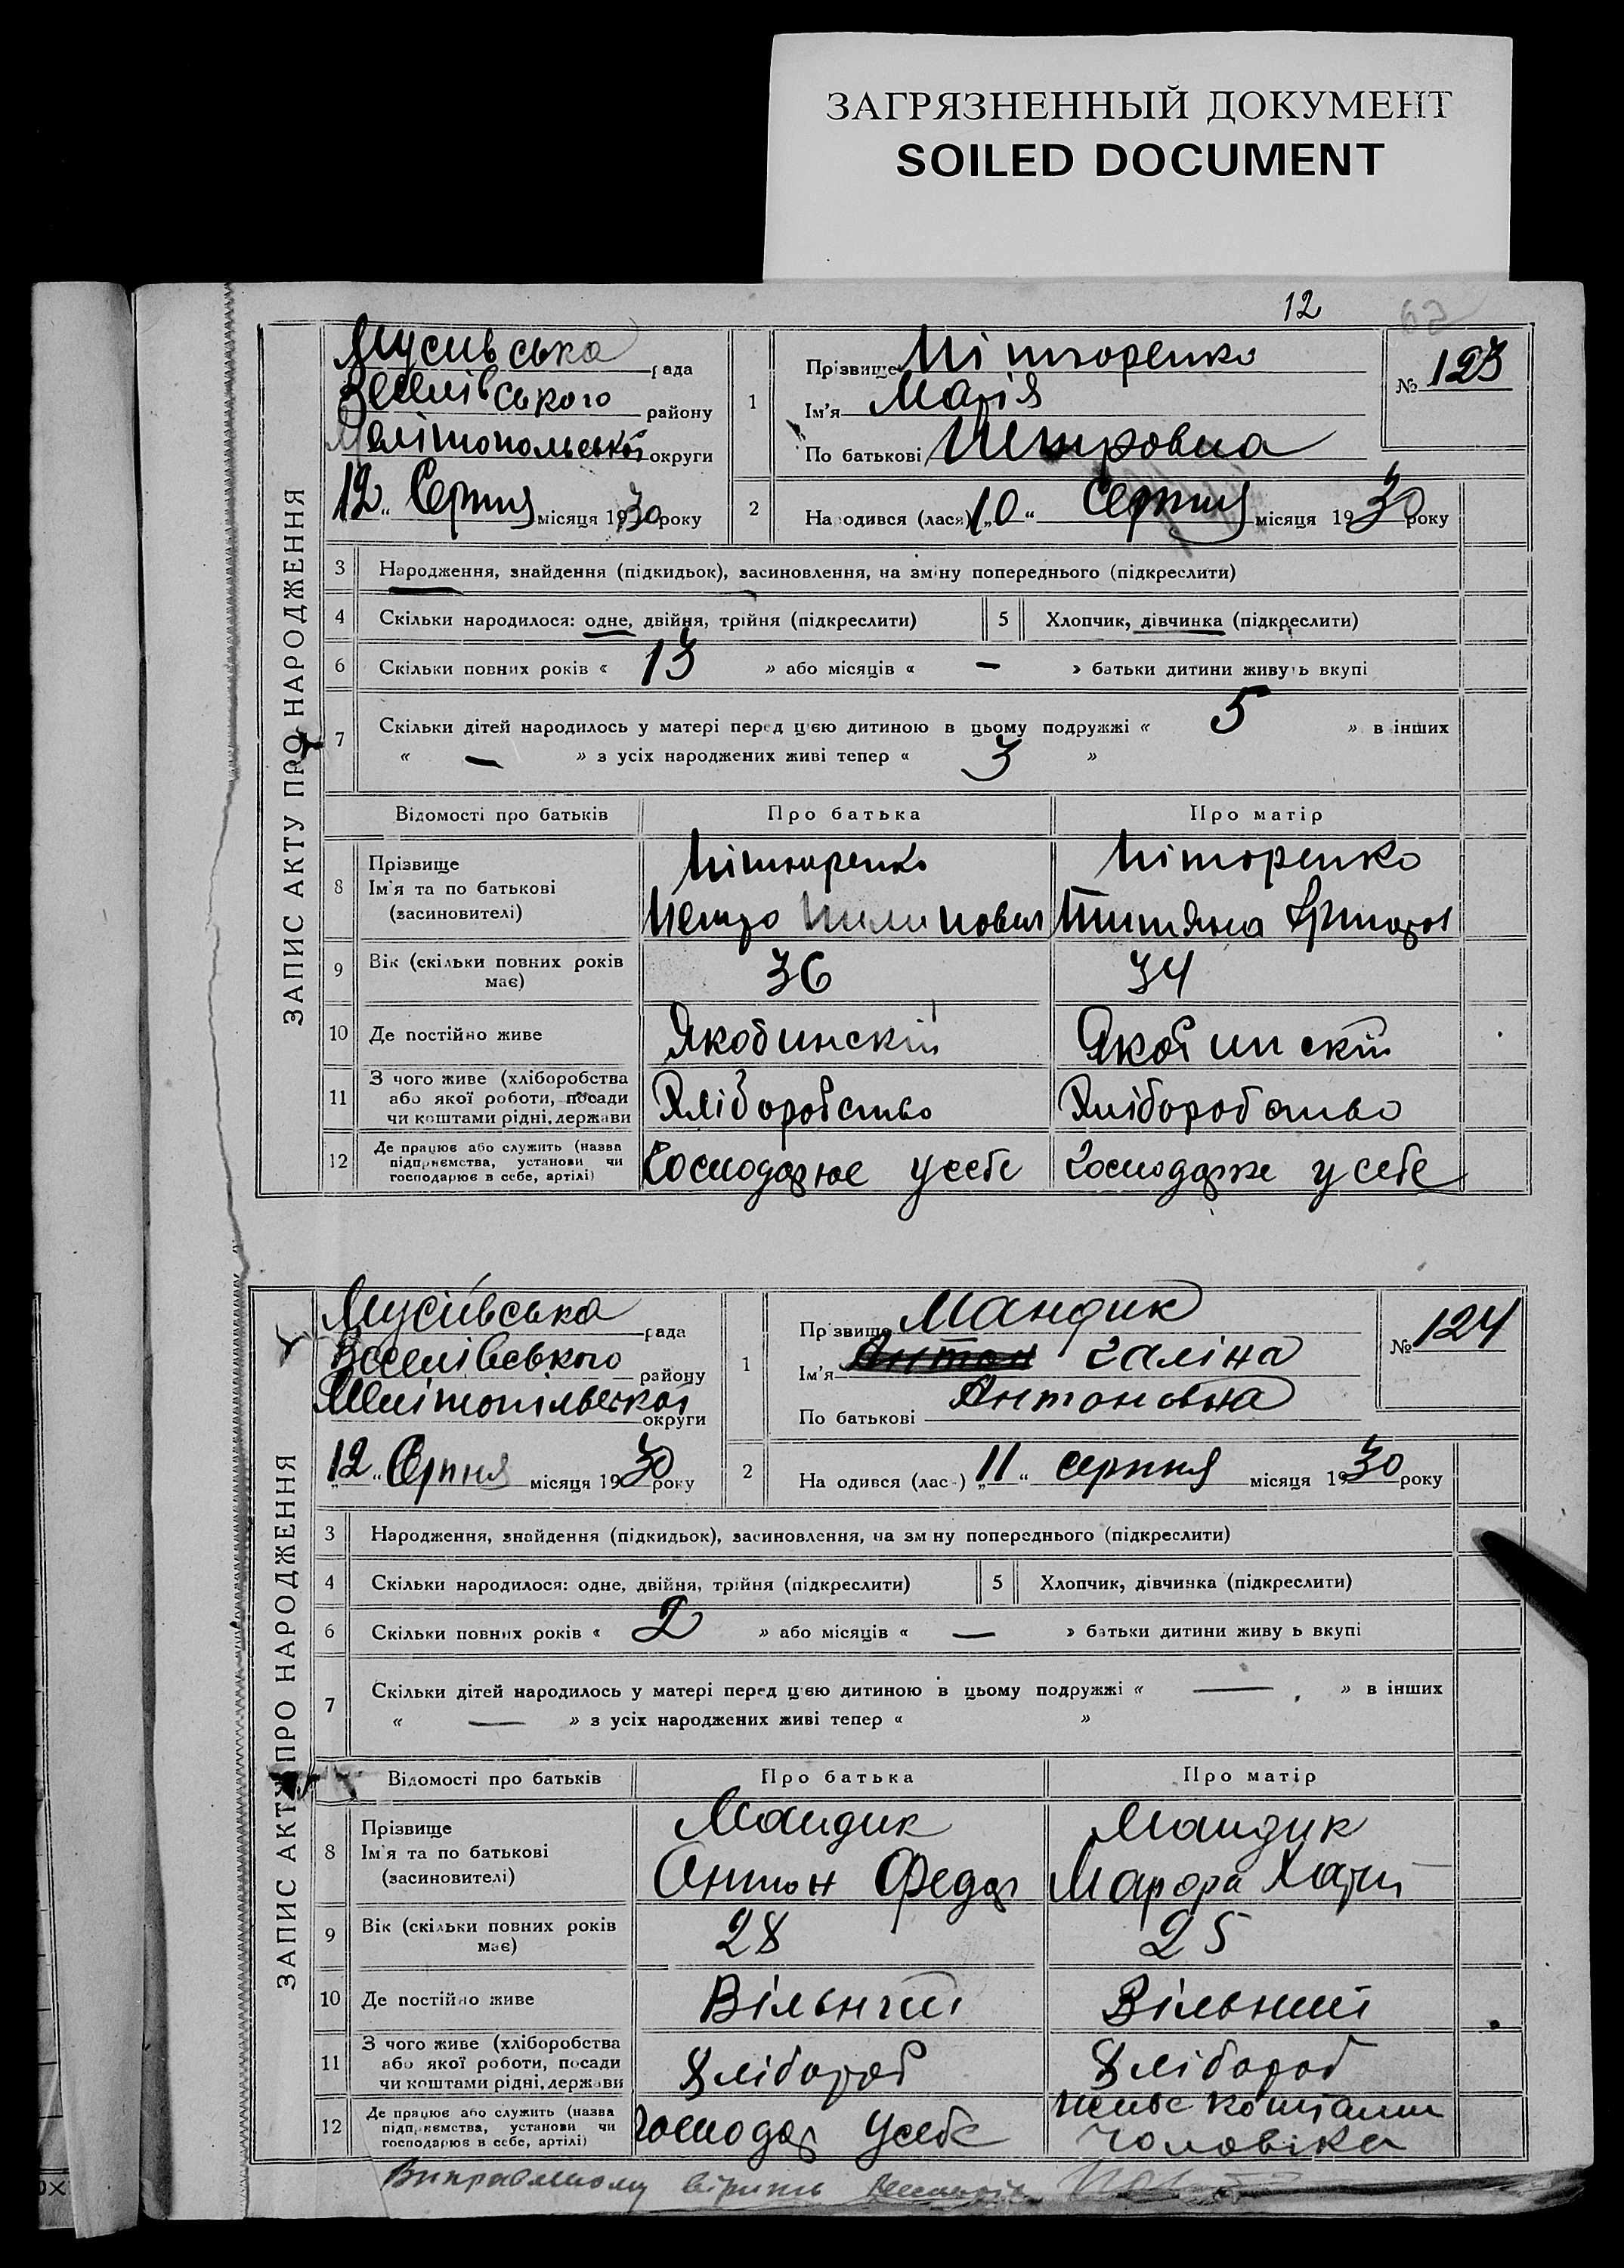 ЗАГРЯЗНЕННЫЙ ДОКУМЕНТ
SOILED DOCUMENT
12
ЗАПИС АКТУ ПРО НАРОДЖЕННЯ
Мусивська рада
Веселівського району
Мелітопольської округи
12 Серпня місяця 1930 року
1
Прізвище Ніторенко
Ім'я Марія
По батькові Петровна
№ 123
2
Народився (лася) „10“ Серпня місяця 1930 року
3 Народження, знайдення (підкидьок), засиновлення, на зміну попереднього (підкреслити)
4 Скільки народилося: одне, двійня, трійня (підкреслити)
5 Хлопчик, дівчинка (підкреслити)
6 Скільки повних років « 13 » або місяців « — » батьки дитини живуть вкупі
7 Скільки дітей народилось у матері перед цією дитиною в цьому подружжі « 5 » в інших
« — » з усіх народжених живі тепер « 3 »
Відомості про батьків Про батька Про матір
8 Прізвище
Ім'я та по батькові
(засиновителі)
Ніторенко Ніторенко
Петро Пилипович Титяна Григоров
9 Вік (скільки повних років має) 36 34
10 Де постійно живе Якобинскій Якобинскій
11 З чого живе (хліборобства
або якої роботи, посади
чи коштами рідні, держави
Хліборобство Хліборобство
12 Де працює або служить (назва
підприємства, установи чи
господарює в себе, артілі)
Господарює у себе Господарює у себе
ЗАПИС АКТУ ПРО НАРОДЖЕННЯ
Мусіївська рада
Веселівського району
Мелітопільської округи
12 Серпня місяця 1930 року
1
Прізвище Мандик
Ім'я Антон Галіна
По батькові Антоновна
№ 124
2
На одився (лас-) „11“ серпня місяця 1930 року
3 Народження, знайдення (підкидьок), засиновлення, на зм ну попереднього (підкреслити)
4 Скільки народилося: одне, двійня, трійня (підкреслити)
5 Хлопчик, дівчинка (підкреслити)
6 Скільки повних років « 2 » або місяців « — » батьки дитини живу ь вкупі
7 Скільки дітей народилось у матері перед цією дитиною в цьому подружжі « — » в інших
« — » з усіх народжених живі тепер « »
Відомості про батьків Про батька Про матір
8 Прізвище
Ім'я та по батькові
(засиновителі)
Мандик Мандик
Антон Федор Марфа
9 Вік (скільки повних років має) 28 25
10 Де постійно живе Вільний Вільний
11 З чого живе (хліборобства
або якої роботи, посади
чи коштами рідні, держави
Хлібороб Хлібороб
12 Де працює або служить (назва
підприємства, установи чи
господарює в себе, артілі)
Господар у себе живе коштами
чоловіка
Виправленому вірить